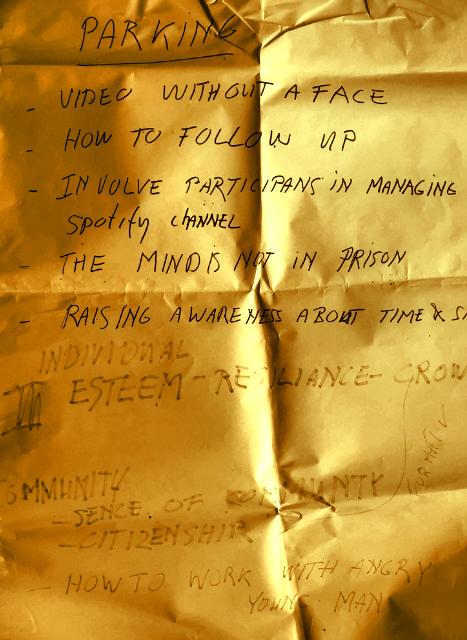 PARKING
- VIDEO WITHOUT A FACE
- HOW TO FOLLOW UP
- INVOLVE PARTICIPANS IN MANAGING
Spotify CHANNEL
- THE MIND IS NOT IN PRISON
- RAISING AWARENESS ABOUT TIME &
INDIVIDUAL
ESTEEM - RESILIANCE - GROW
COMMUNITY
- SENCE OF COMMUNITY
- CITIZENSHIP
- HOW TO WORK WITH ANGRY
YOUNG MAN